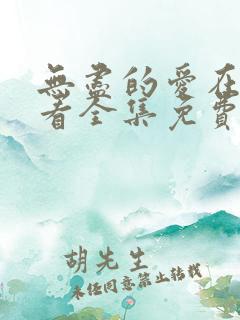 無盡的愛在
看全集免費
胡先生
未經同意禁止轉載